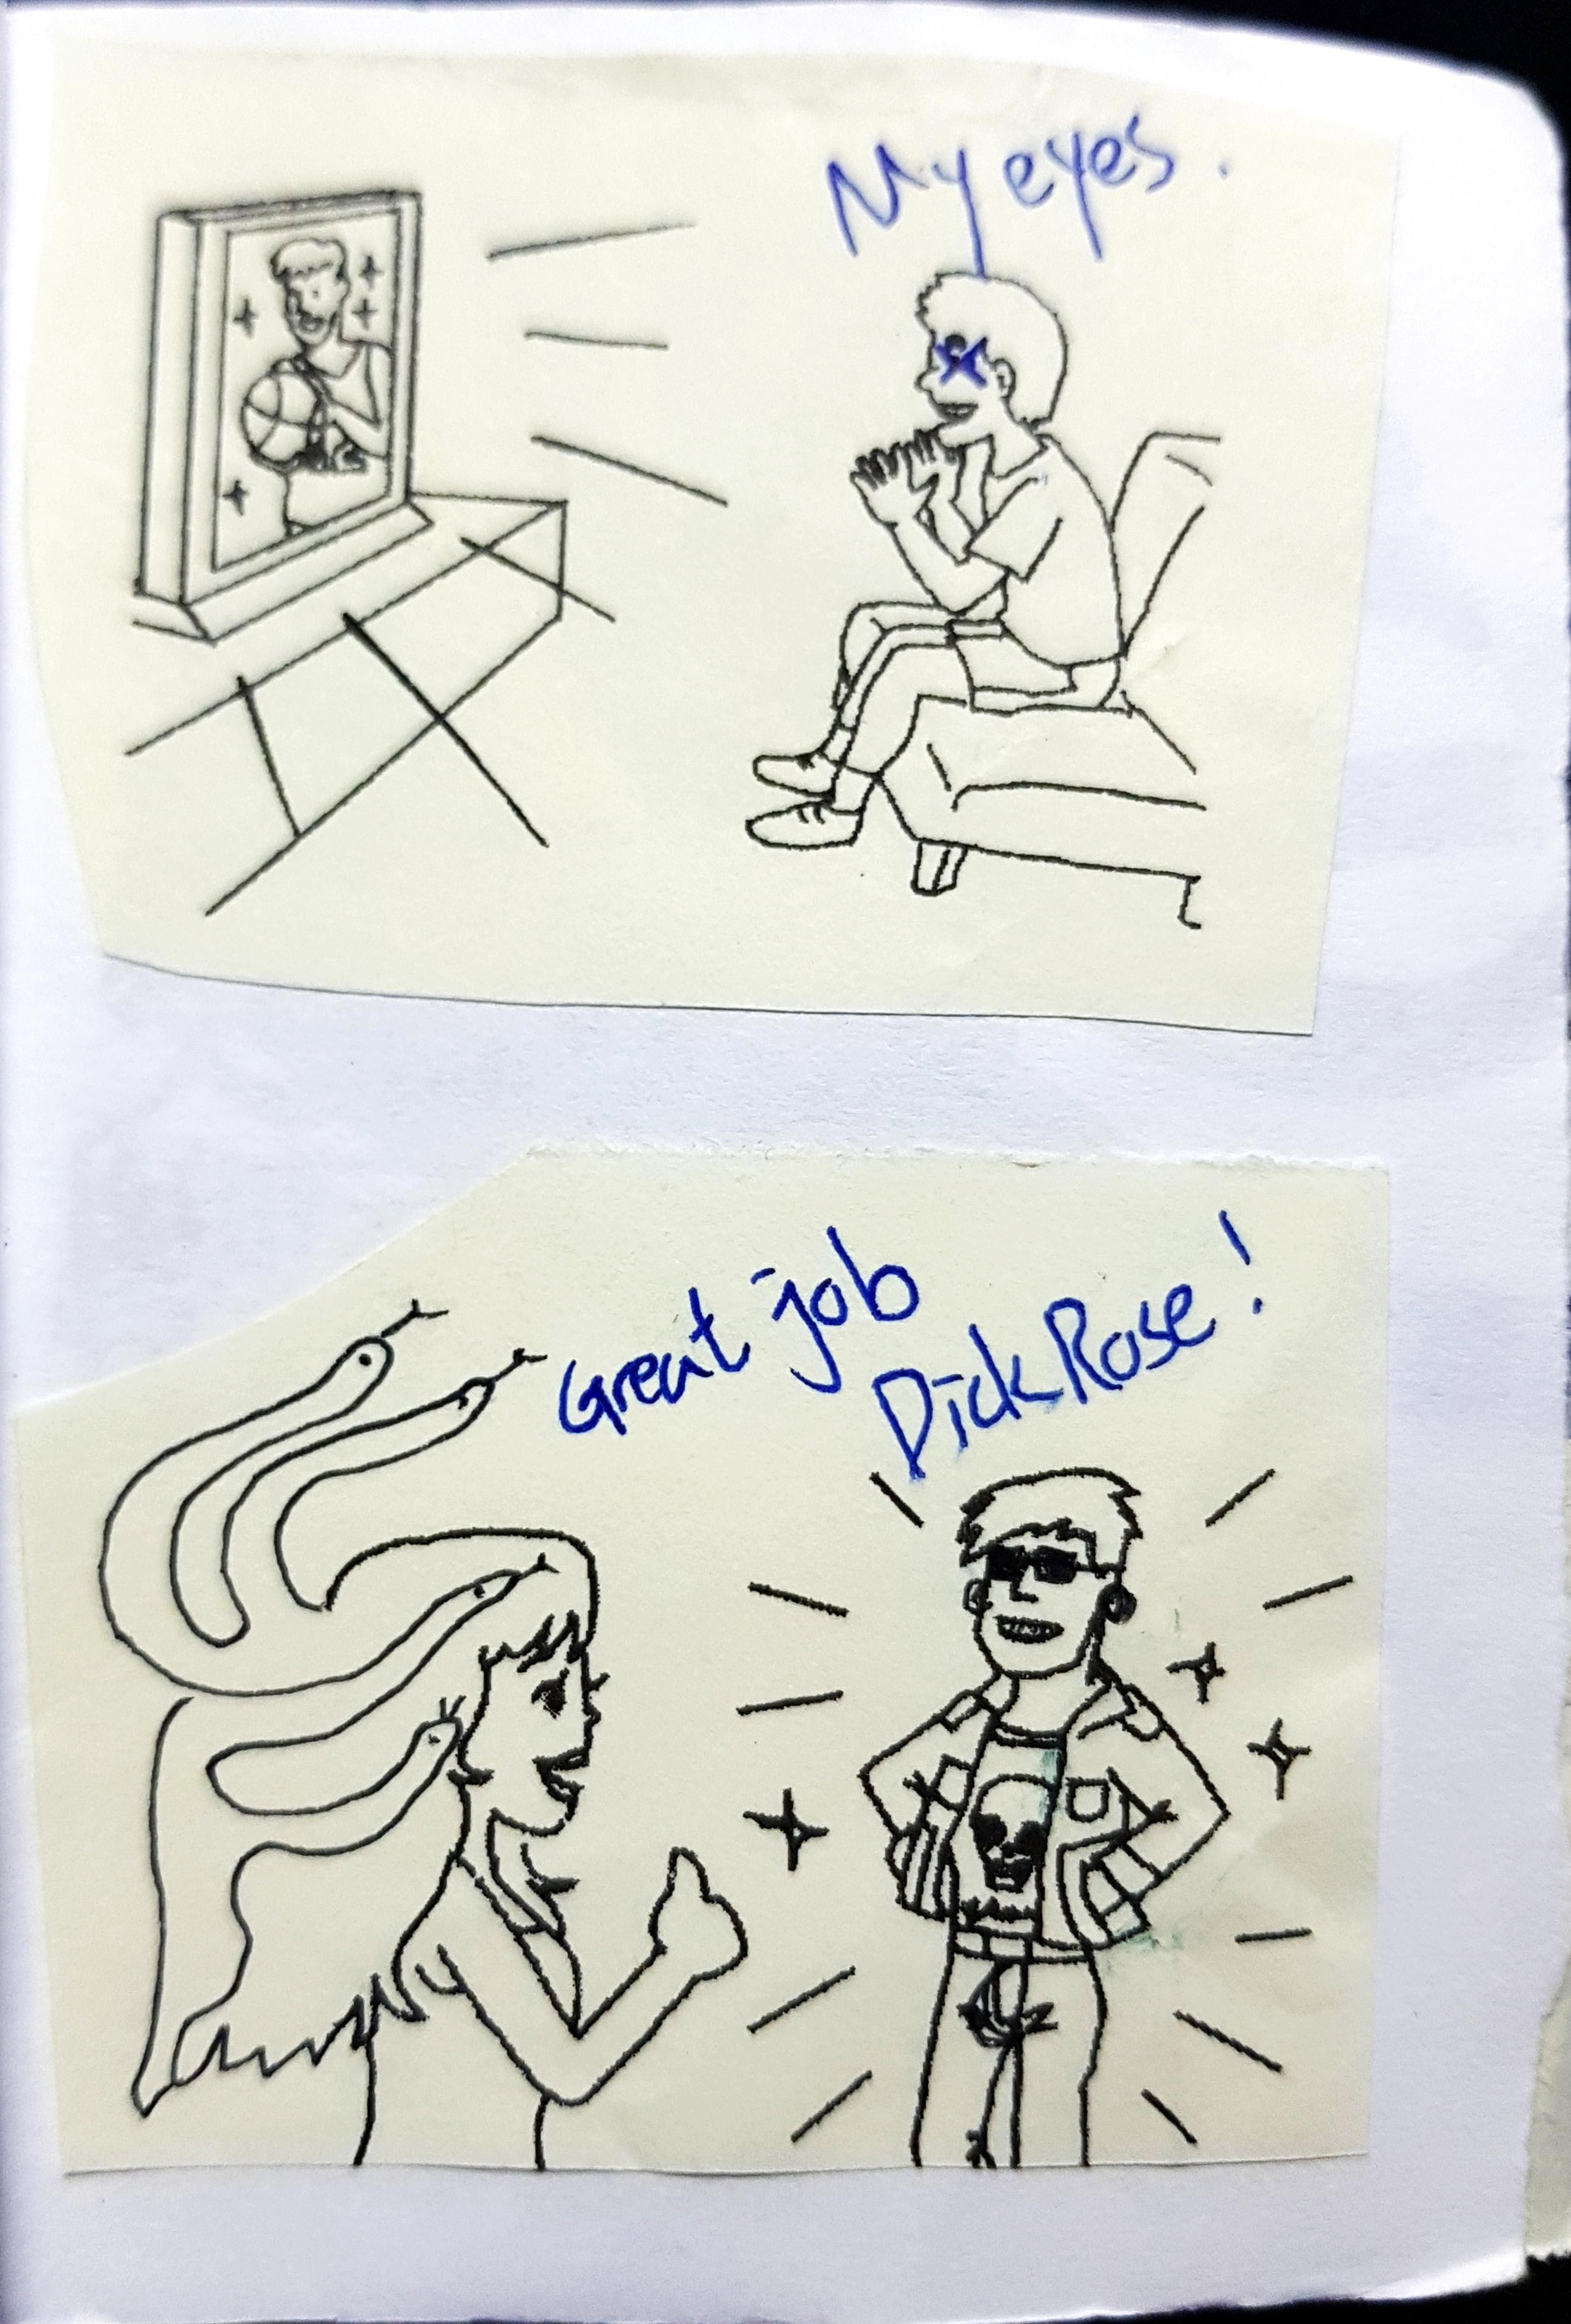 My eyes.
Great job
Dick Rose!